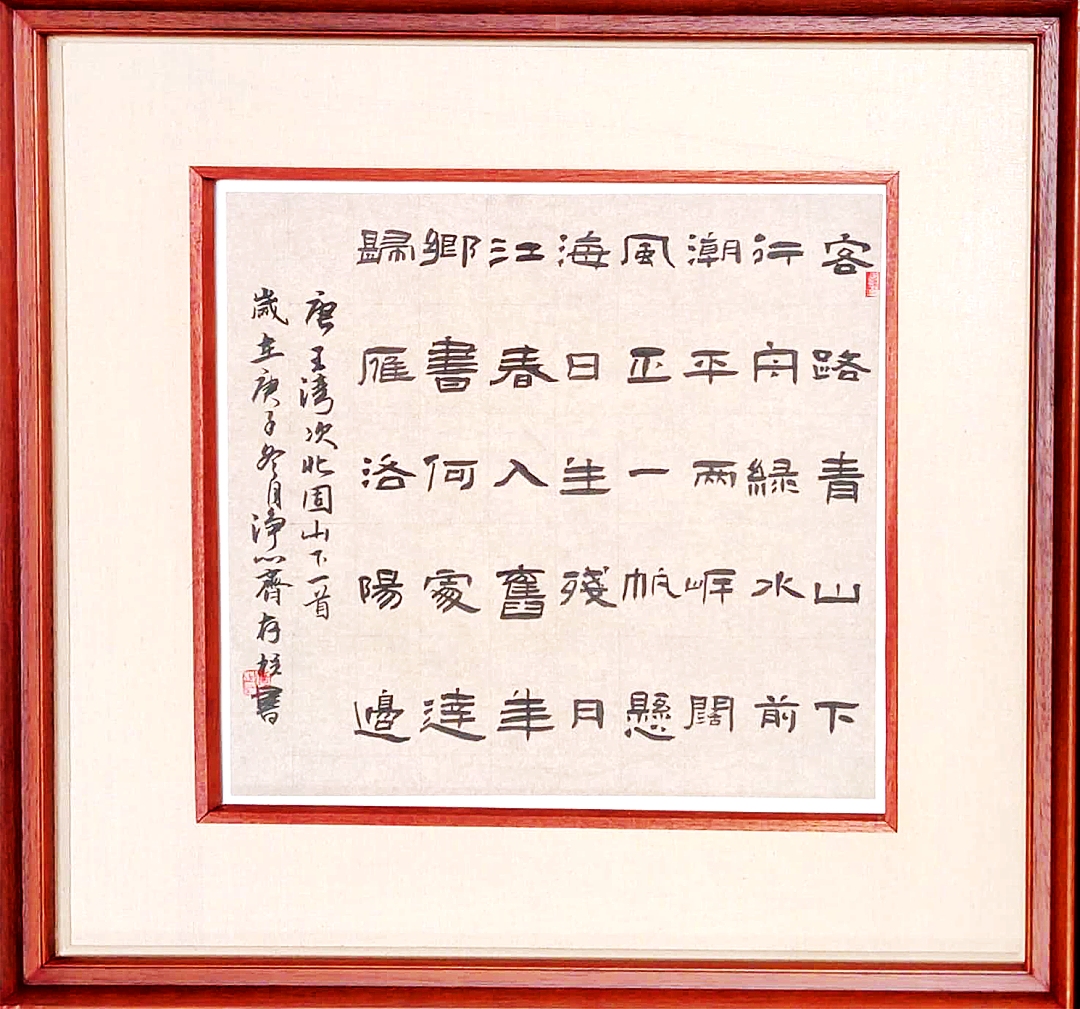 客路青山下
行舟綠水前
潮平兩岸闊
風正一帆懸
海日生殘月
江春入舊年
鄉書何處達
歸雁洛陽邊
唐王灣次北固山下一首
歲在庚子冬月淨心齋存書